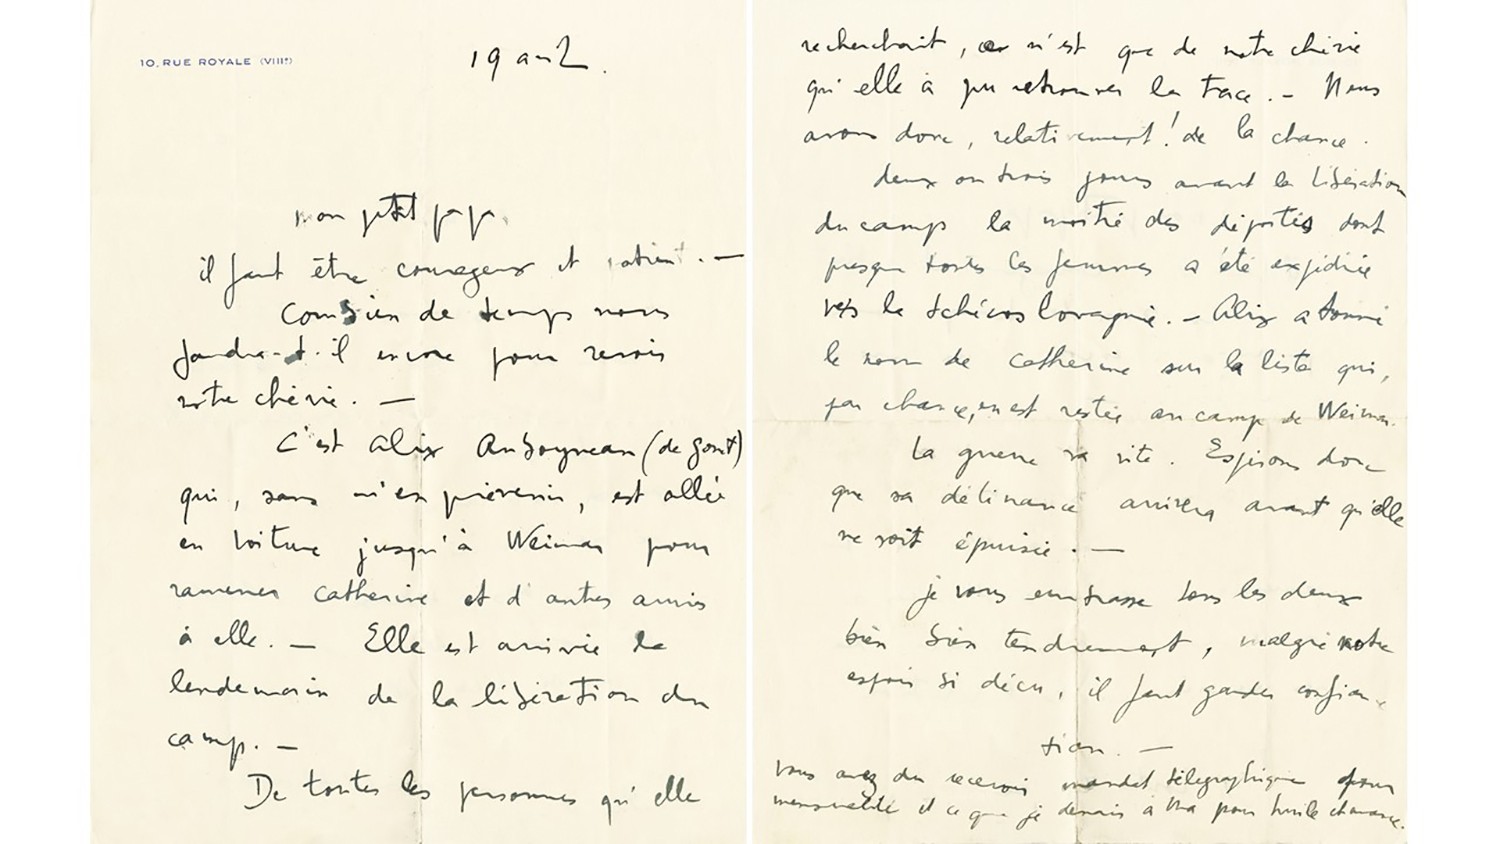 10, RUE ROYALE (VIIIe)
19 avril.
mon petit papa,
il faut être courageux et patient. —
Combien de temps nous
faudra-t-il encore pour revoir
notre chérie. —
C'est Alix Auboyneau (de Gont)
qui, sans m'en prévenir, est allée
en voiture jusqu'à Weimar pour
ramener Catherine et d'autres amis
à elle. — Elle est arrivée le
lendemain de la libération du
camp. —
De toutes les personnes qu'elle
recherchait, ce n'est que de notre chérie
qu'elle a pu retrouver la trace. — Nous
avons donc, relativement! de la chance.
deux ou trois jours avant la libération
du camp la moitié des déportés dont
presque toutes les femmes a été expédiée
vers la Tchécoslovaquie. — Alix a trouvé
le nom de Catherine sur la liste qui,
par chance, en est restée au camp de Weimar.
La guerre va vite. Espérons donc
que sa délivrance arrivera avant qu'elle
ne soit épuisée. —
je vous embrasse tous les deux
bien bien tendrement, malgré notre
espoir si déçu, il faut garder confiance
tian. —
Vous avez du recevoir mandat télégraphique pour
mensualité et ce que je devais à Ma pour huile chance.